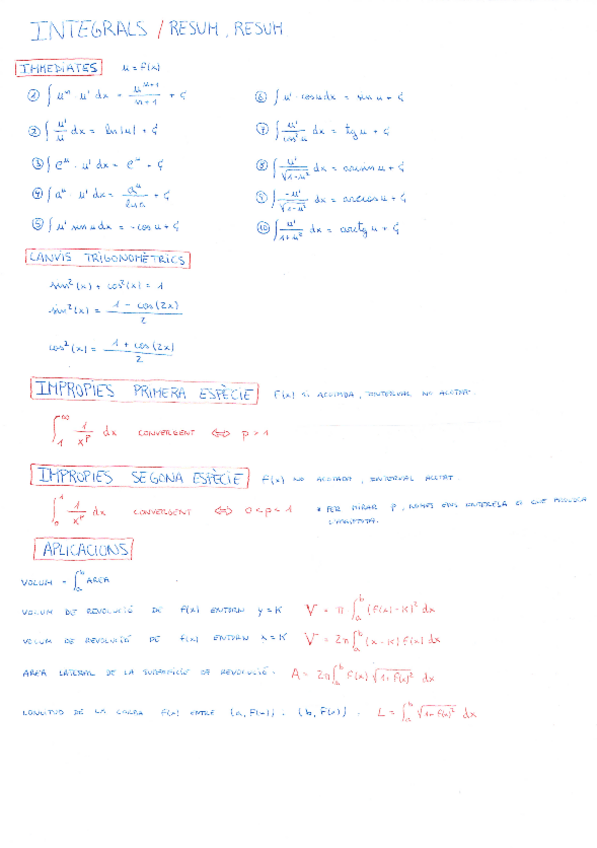 INTEGRALS / RESUM, RESUM
IMMEDIATES u = f(x)
① ∫ uⁿ · u' dx = uⁿ⁺¹/(n+1) + C
② ∫ u'/u dx = ln|u| + C
③ ∫ eᵘ · u' dx = eᵘ + C
④ ∫ aᵘ u' dx = aᵘ/ln a + C
⑤ ∫ u' sin u dx = -cos u + C
⑥ ∫ u' · cos u dx = sin u + C
⑦ ∫ u'/cos² u dx = tg u + C
⑧ ∫ u'/√(1-u²) dx = arcsin u + C
⑨ ∫ -u'/√(1-u²) dx = arccos u + C
⑩ ∫ u'/(1+u²) dx = arctg u + C
CANVIS TRIGONOMÈTRICS
sin²(x) + cos²(x) = 1
sin²(x) = (1 - cos(2x))/2
cos²(x) = (1 + cos(2x))/2
IMPROPIES PRIMERA ESPÈCIE f(x) si ACOTADA, INTERVAL NO ACOTAT.
∫₁^∞ 1/xᵖ dx CONVERGENT ⇔ p > 1
IMPROPIES SEGONA ESPÈCIE f(x) NO ACOTADA, INTERVAL ACOTAT.
∫₀¹ 1/xᵖ dx CONVERGENT ⇔ 0 < p < 1 * PER MIRAR P, NOMÉS ENS INTERESSA EL QUE
APLICACIONS
VOLUM = ∫ₐᵇ AREA
VOLUM DE REVOLUCIÓ DE f(x) ENTORN y = K V = π ∫ₐᵇ (f(x) - K)² dx
VOLUM DE REVOLUCIÓ DE f(x) ENTORN x = K V = 2π ∫ₐᵇ (x - K) f(x) dx
AREA LATERAL DE LA SUPERFICIE DE REVOLUCIÓ. A = 2π ∫ₐᵇ f(x) √(1+f'(x)²) dx
LONGITUD DE LA CORBA f(x) ENTRE (a, f(a)) i (b, f(b)). L = ∫ₐᵇ √(1+f'(x)²) dx